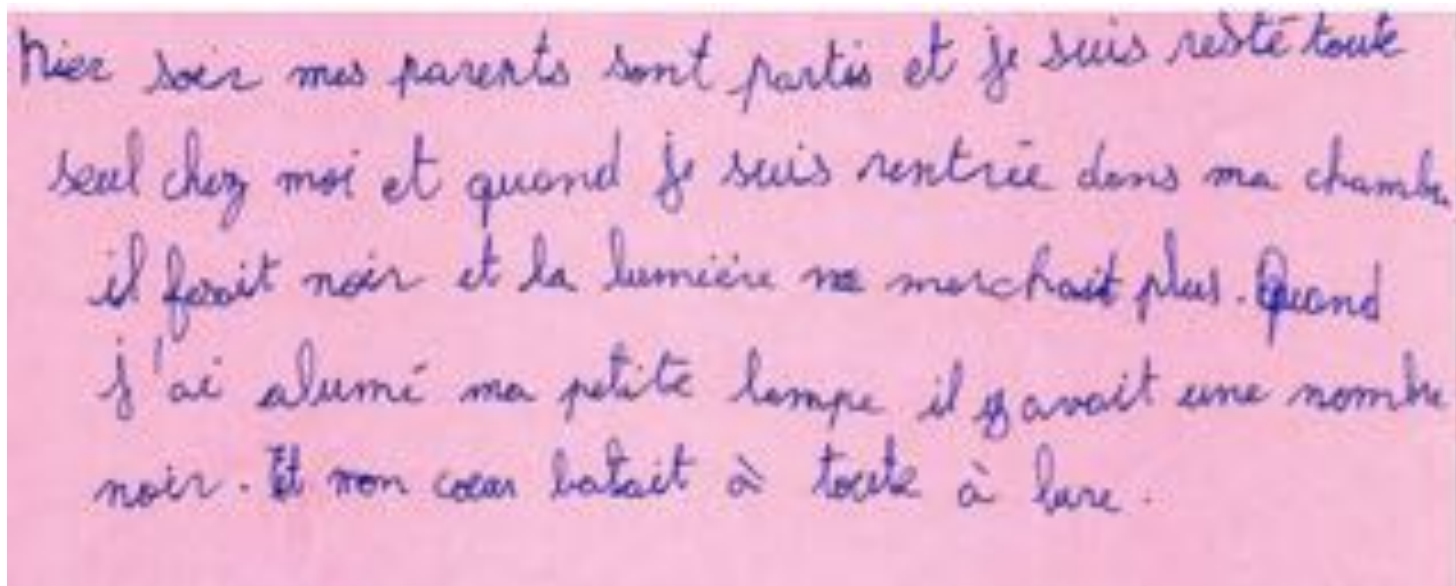 hier soir mes parents sont partis et je suis resté toute
seul chez moi et quand je suis rentrée dans ma chambre
il fesait noir et la lumière ne marchait plus. Quand
j'ai alumé ma petite lampe il y avait une nombre
noir. Et mon cœur batait à toute à lure.